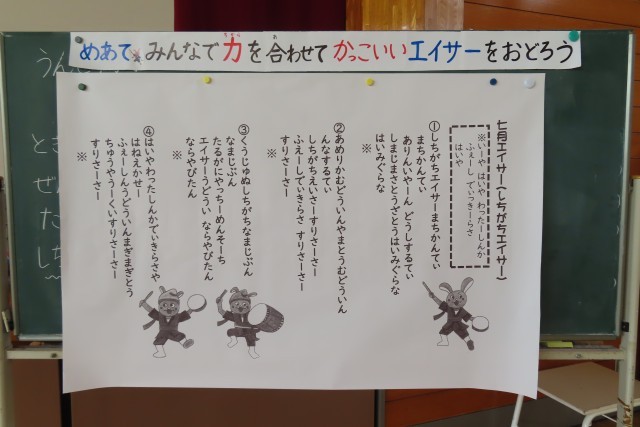 めあて みんなで力を合わせて かっこいいエイサーをおどろう
七月エイサー(しちがちエイサー)
※いーや はいや わったーしんか
ふぇーし でぃっきーらさ
はいや
①しちがちエイサーまちかんてぃ
まちかんてぃ
ありんいやーん どうしするてぃ
しまじまさとぅざとぅはいみぐらな
はいみぐらな
※
②あめりかむどぅいんやまとぅむどぅいん
んなするてぃ
しちがちえいさーすりさーさー
ふえーしでぃきらさ すりさーさー
すりさーさー
※
③くうじゅぬしちがちなまじぶん
なまじぶん
たるがにやっちーめんそーち
エイサーうどうい ならやびたん
ならやびたん
※
④はいやわったーしんかでぃきらさや
はねえかせー
ふぇーしんうどぅいんまぎまぎとぅ
ちゅうやうーくいすりさーさー
すりさーさー
※